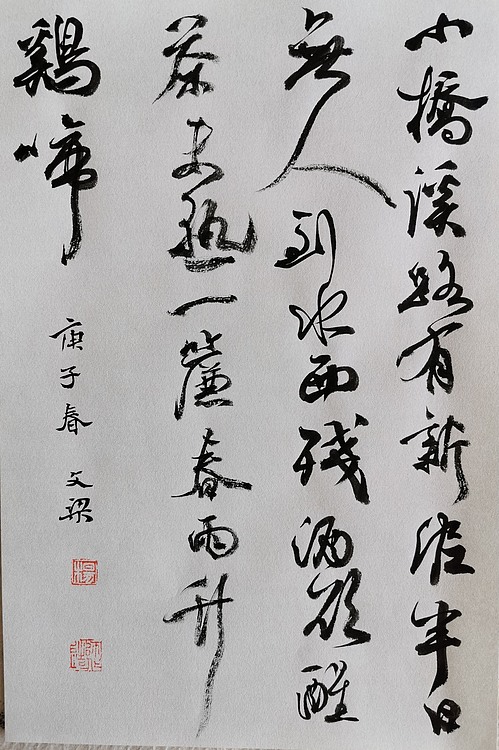 小橋溪路有新泥半日
無人到水西殘酒欲醒
茶未熟一簾春雨竹
鷄啼
庚子春 文梁